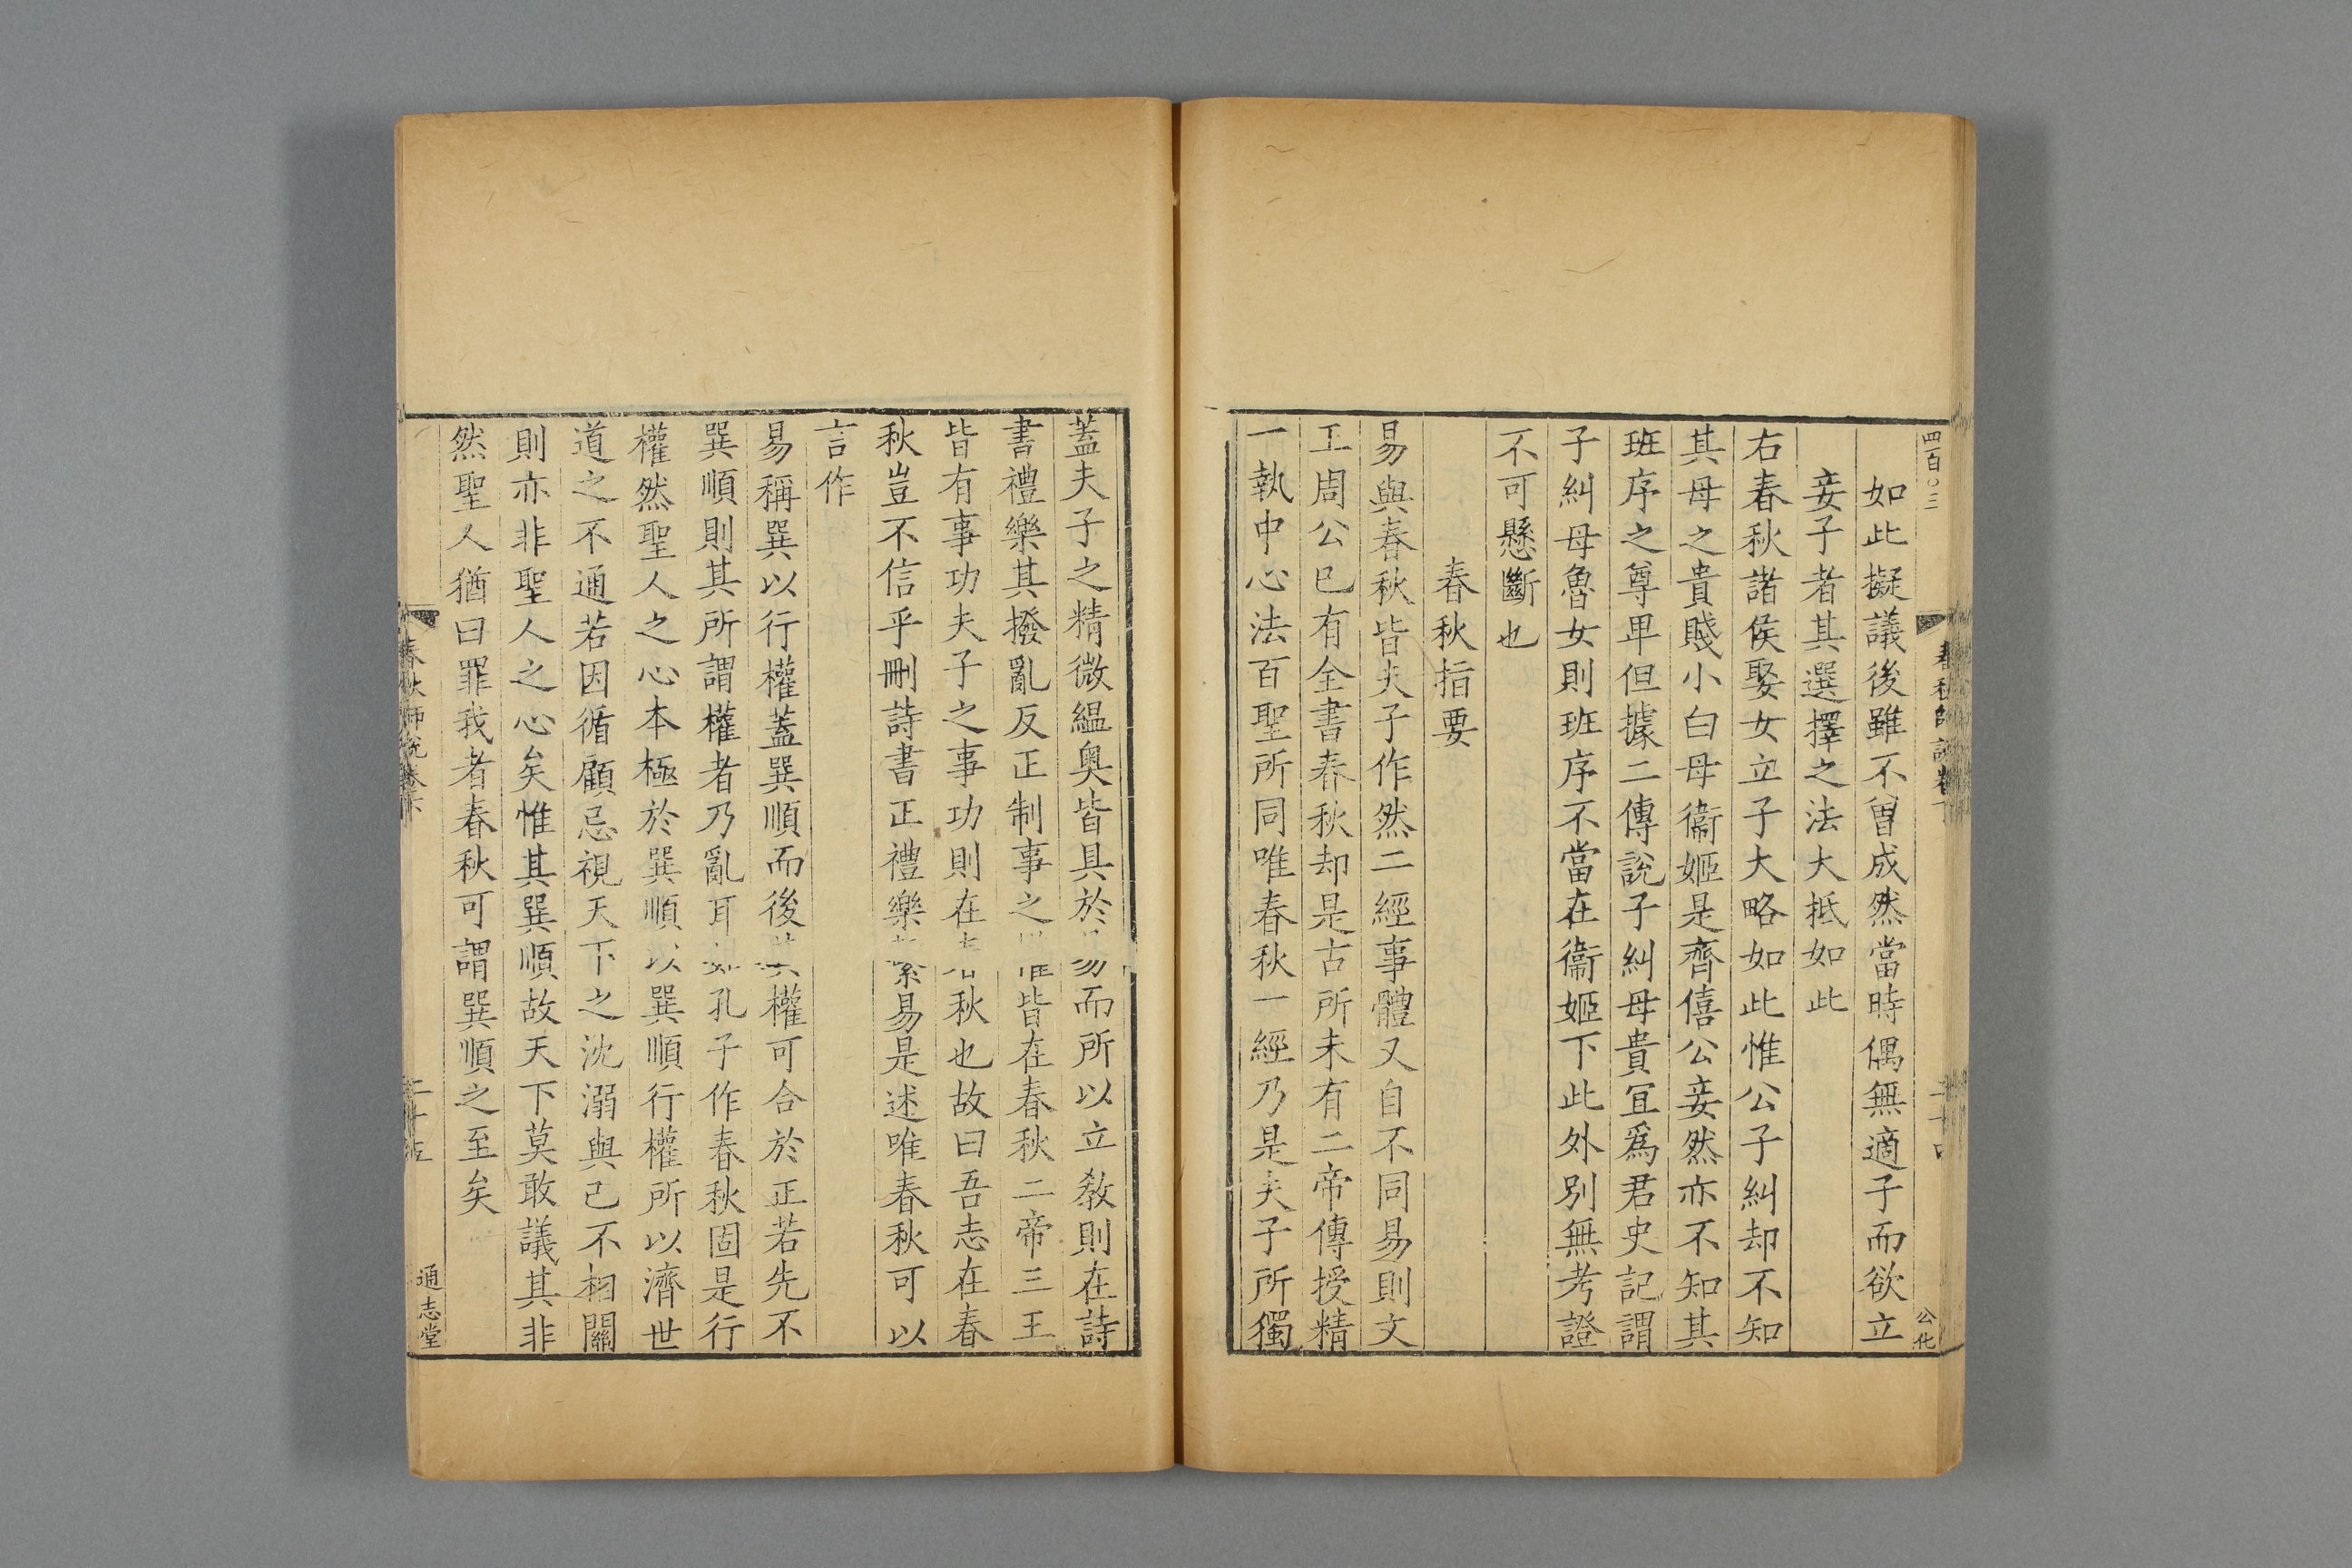 四百〇三
公化
如此擬議後雖不曾成然當時偶無適子而欲立
妾子者其選擇之法大抵如此
右春秋諸侯娶女立子大略如此惟公子糾却不知
其母之貴賤小白母衞姬是齊僖公妾然亦不知其
班序之尊卑但據二傳說子糾母貴宜爲君史記謂
子糾母魯女則班序不當在衞姬下此外別無考證
不可懸斷也
春秋指要
易與春秋皆夫子作然二經事體又自不同易則文
王周公已有全書春秋却是古所未有二帝傳授精
一執中心法百聖所同唯春秋一經乃是夫子所獨
蓋夫子之精微縕奥皆具於易而所以立敎則在詩
書禮樂其撥亂反正制事之皆在春秋二帝三王
皆有事功夫子之事功則在春秋也故曰吾志在春
秋豈不信乎刪詩書正禮樂繫易是述唯春秋可以
言作
易稱巽以行權蓋巽順而後其權可合於正若先不
巽順則其所謂權者乃亂耳如孔子作春秋固是行
權然聖人之心本極於巽順以巽順行權所以濟世
道之不通若因循顧忌視天下之沈溺與己不相關
則亦非聖人之心矣惟其巽順故天下莫敢議其非
然聖人猶曰罪我者春秋可謂巽順之至矣
春秋師說卷下
二十五
通志堂